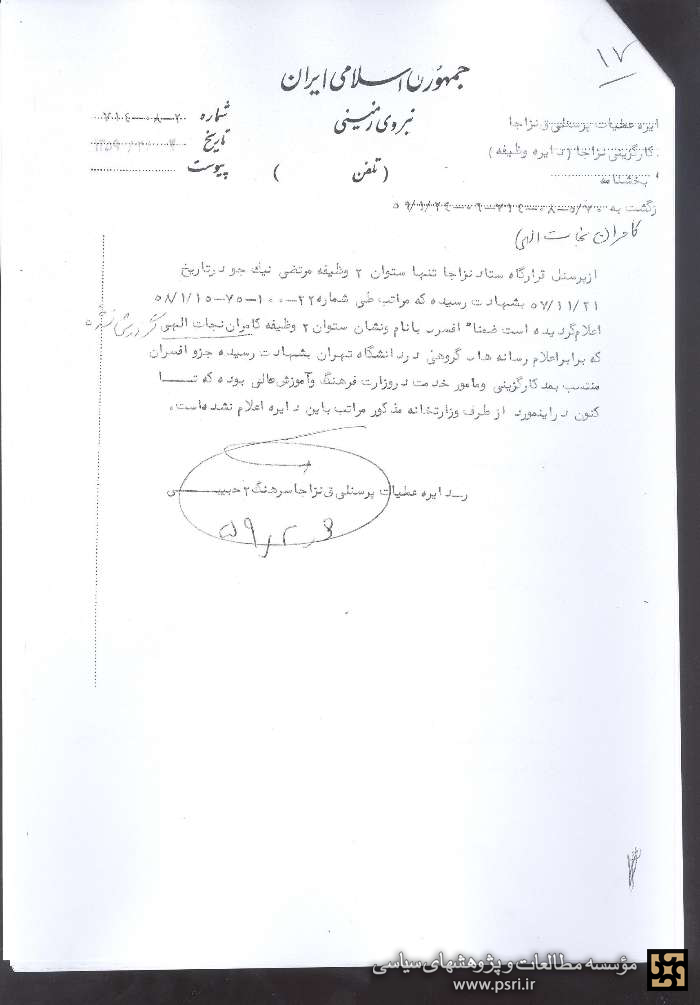 ۱۷
جمهوری اسلامی ایران
نیروی زمینی
شماره
تاریخ
پیوست
( تلفن )
دایره عملیات پرسنلی ق نزاجا
کارگزینی نزاجا ( دایره وظیفه )
بخشنامه
کامران نجات الهی
از پرسنل قرارگاه ستاد نزاجا تنها ستوان ۲ وظیفه مرتضی نیک جو در تاریخ
۵۷/۱۱/۲۱ بشهادت رسیده که مراتب طی شماره ۲۲-۱۰۰-۷۵-۵۸/۱/۱۵
اعلام گردیده است ضمنا" افسری بانام ونشان ستوان ۲ وظیفه کامران نجات الهی
که برابر اعلام رسانه های گروهی در دانشگاه تهران بشهادت رسیده جزو افسران
منتسب بمد کارگزینی ومامور خدمت در وزارت فرهنگ وآموزش عالی بوده که تا
کنون در اینمورد از طرف وزارتخانه مذکور مراتب باین دایره اعلام نشده است .
ر - دایره عملیات پرسنلی ق نزاجا سرهنگ ۲ حبیبی
مؤسسه مطالعات و پژوهشهای سیاسی
www.psri.ir